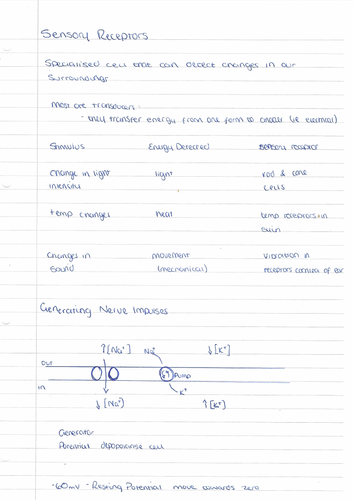 Sensory Receptors
Specialised cell that can detect changes in our
surroundings
Most are transducers
- they transfer energy from one form to another (ie electrical)
Stimulus Energy Detected sensory receptor
change in light light rod & cone
intensity cells
temp changes heat temp receptors in
skin
changes in movement vibration in
sound (mechanical) receptors cochlea of ear
Generating Nerve Impulses
↑[Na⁺] Na⁺ ↓[K⁺]
out
in Pump
K⁺
↓[Na⁺] ↑[K⁺]
Generator
Potential depolarise cell
-60mv - Resting Potential move towards zero